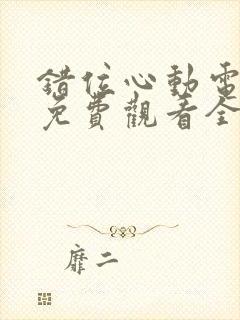 錯位心動電
免費觀看全
靡二